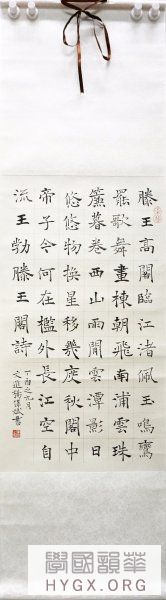 滕王高閣臨江渚佩玉鳴鸞
罷歌舞畫棟朝飛南浦雲珠
簾暮卷西山雨閒雲潭影日
悠悠物換星移幾度秋閣中
帝子今何在檻外長江空自
流王勃滕王閣詩
丁酉之九月
書
學國韻華
HYGX.ORG